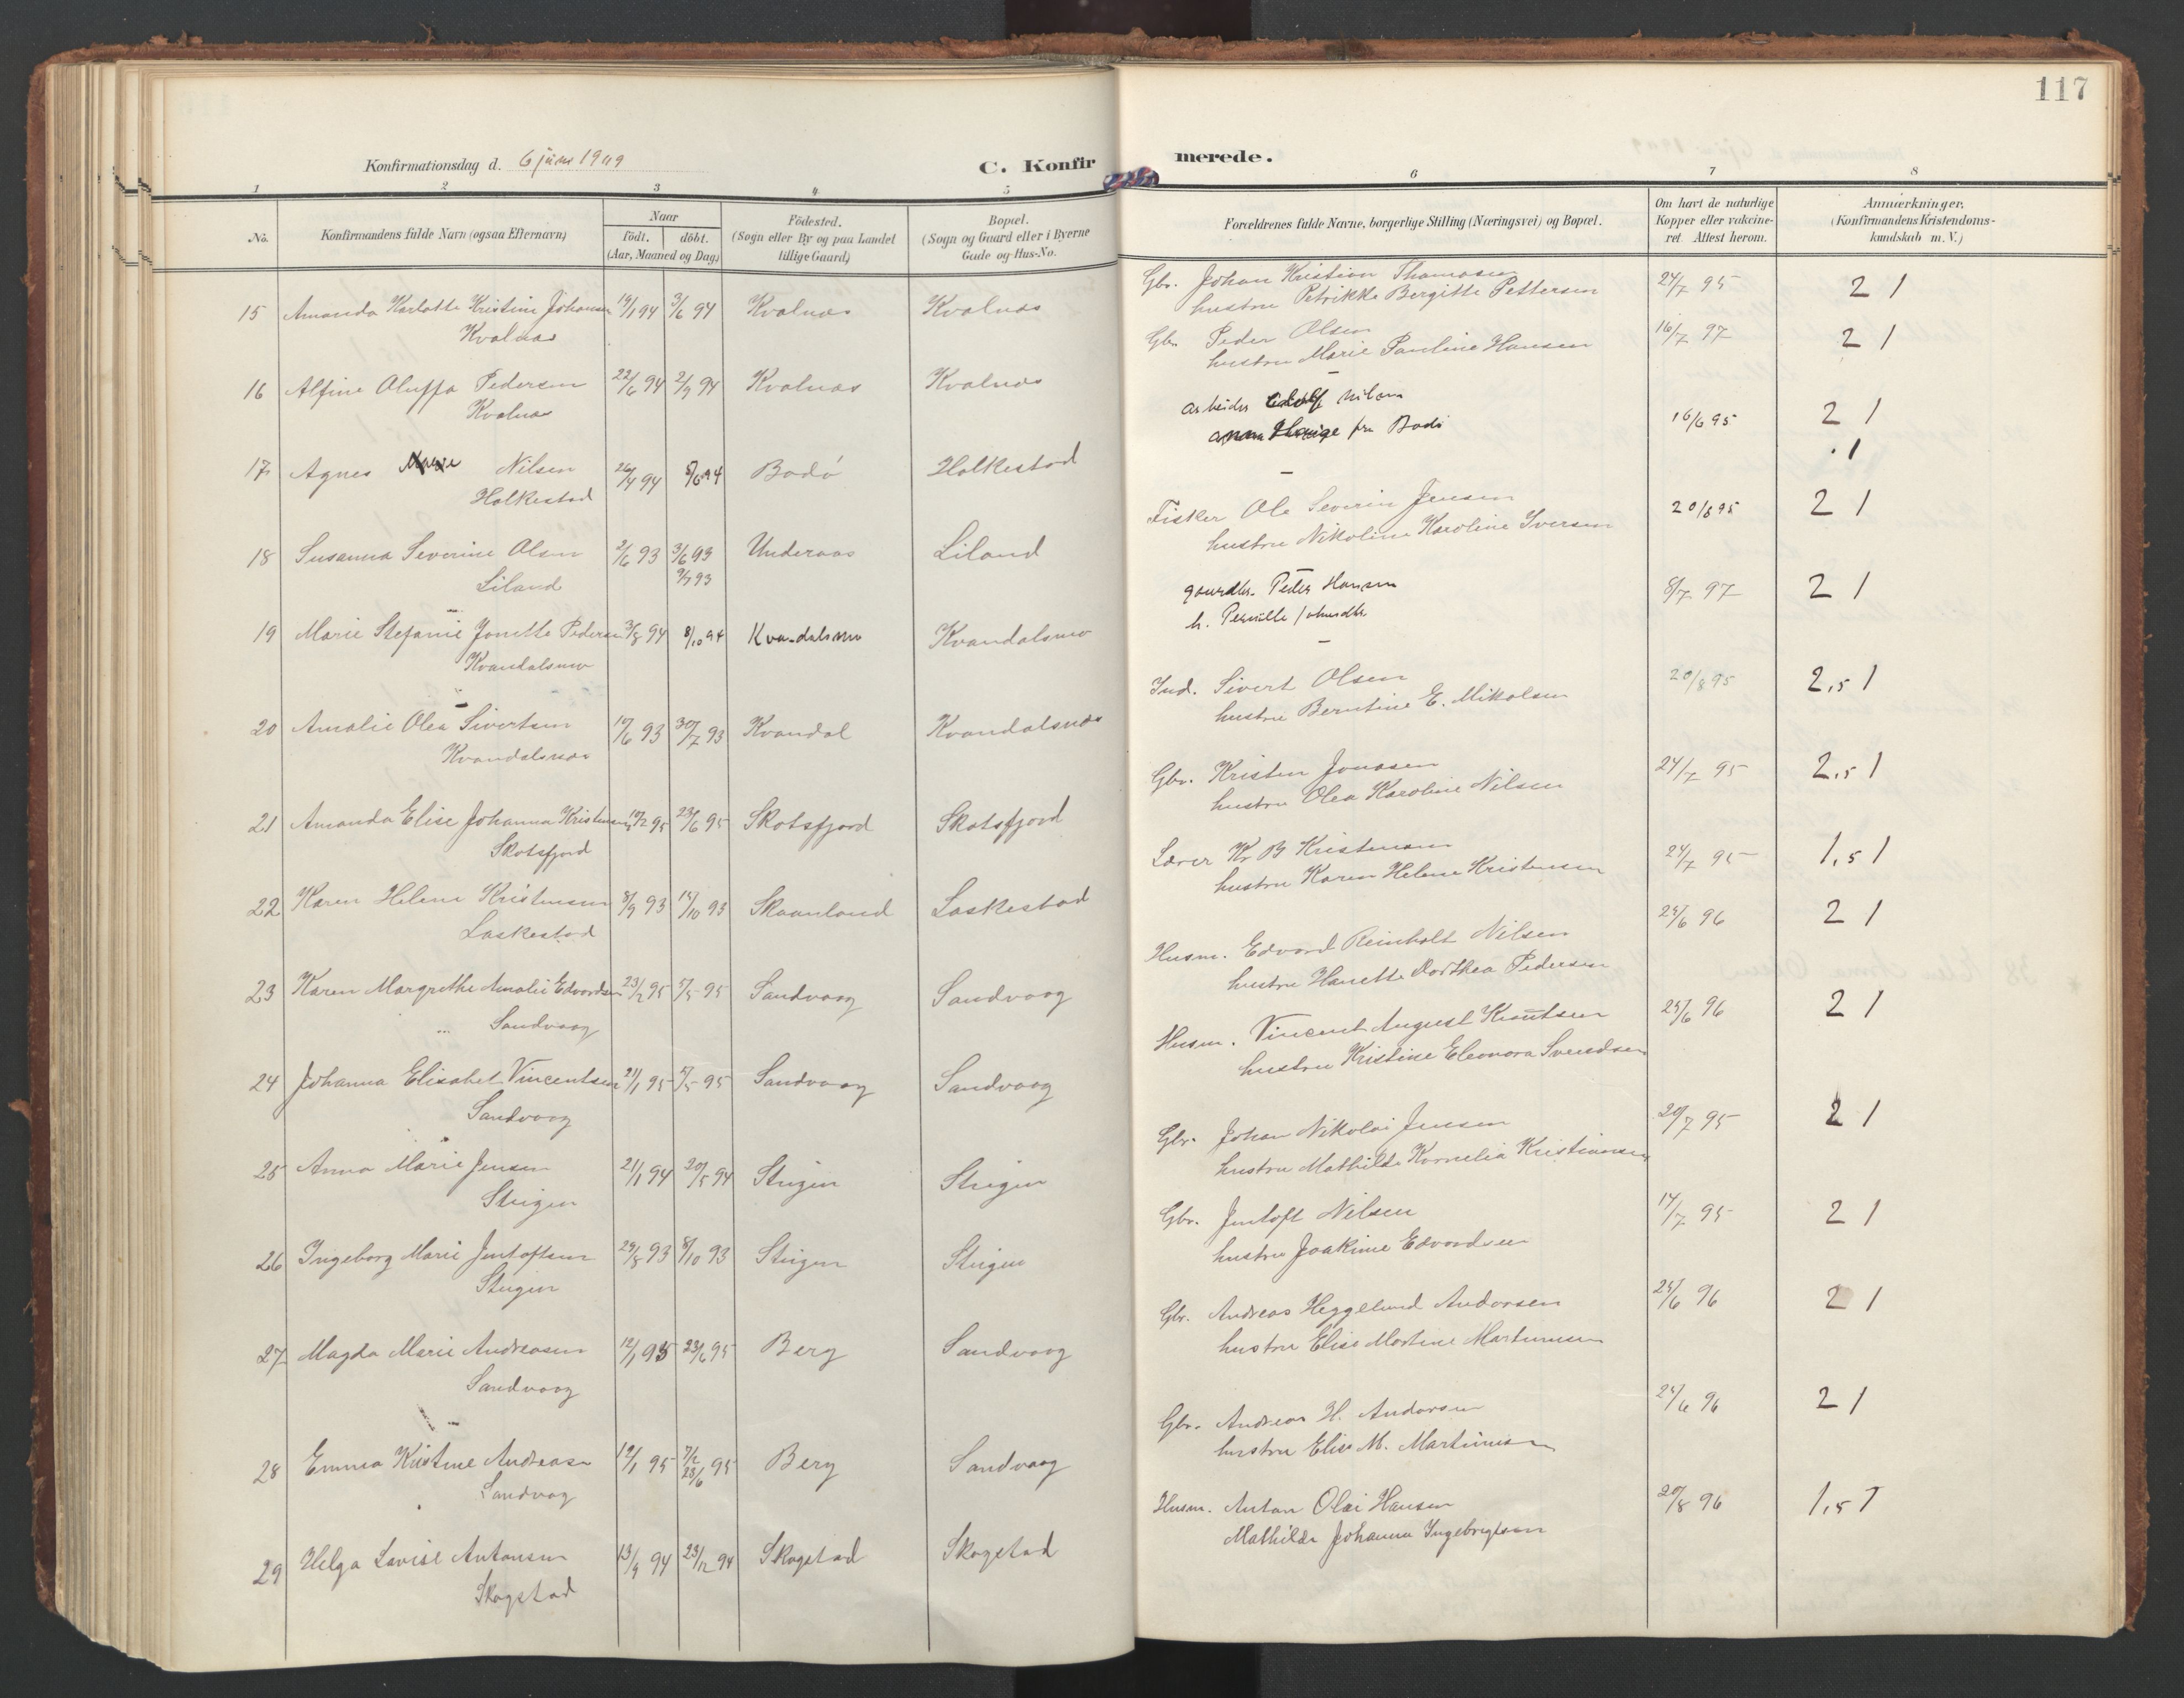 117
Konfirmationsdag d. 6 juni 1909
C. Konfirmerede.
1 2 3 4 5 6 7 8
No.
Konfirmandens fulde Navn (ogsaa Efternavn)
Naar
födt. döbt.
(Aar, Maaned og Dag)
Födested.
(Sogn eller By og paa Landet
tillige Gaard)
Bopæl.
(Sogn og Gaard eller i Byerne
Gade og Hus-No.
Forældrenes fulde Navne, borgerlige Stilling (Næringsvei) og Bopæl.
Om havt de naturlige
Kopper eller vakcine-
ret. Attest herom.
Anmærkninger.
(Konfirmandens Kristendoms-
kundskab m. V.)
15 Amanda Karlotte Kristine Johansen 19/1 94 3/6 94 Kvalnæs Kvalnæs
Kvalnæs
Gbr. Johan Kristian Thomassen 24/7 95 2 1
hustru Petrikke Bergitte Pettersen
16 Alfine Oluffa Pedersen 22/6 94 2/9 94 Kvalnæs Kvalnæs
Kvalnæs
Gbr. Peder Olsen 16/7 97 2 1
hustru Marie Pauline Hansen
17 Agnes Nilsen 26/4 94 94 Bodö Holkestad
Holkestad
arbeider Nilsen 16/6 95 2 1
Anna Hauge fra Bodö 1
18 Susanna Severine Olsen 2/6 93 3/6 93 Underaas Liland
Liland 9/7 93
Fisker Ole Severin Jensen 20/8 95 2 1
hustru Nikoline Karoline Iversen
19 Marie Stefanie Jonette Pedersen 3/8 94 8/10 94 Kvandalsnes Kvandalsnes
Kvandalsnes
gaardbr. Peder Hansen 8/7 97 2 1
h. Pernille
20 Amalie Olea Sivertsen 10/6 93 30/7 93 Kvandal Kvandalsnæs
Kvandalsnæs
Ind. Sivert Olsen 20/8 95 2,5 1
hustru Berntine E. Mikalsen
21 Amanda Elise Johanna Kristensen 10/2 95 23/6 95 Skotsfjord Skotsfjord
Skotsfjord
Gbr. Kristen Jonasen 24/7 95 2,5 1
hustru Olea Karoline Nilsen
22 Karen Helene Kristensen 8/9 93 15/10 93 Skaanland Laskestad
Laskestad
Lærer Kr B Kristensen 24/7 95 1,5 1
hustru Karen Helene Kristensen
23 Karen Margrethe Amalie Edvardsen 23/2 95 5/5 95 Sandvaag Sandvaag
Sandvaag
Husm. Edvard Reinholt Nilsen 25/6 96 2 1
hustru Hanette Dorthea Pedersen
24 Johanna Elisabet Vincentsen 21/1 95 5/5 95 Sandvaag Sandvaag
Sandvaag
Husm. Vincent August Knutsen 25/6 96 2 1
hustru Kristine Eleonora Svendsen
25 Anna Marie Jensen 21/1 94 20/5 94 Steigen Steigen
Steigen
Gbr. Johan Nikolai Jensen 20/7 95 2 1
hustru Mathilde Kornelia Kristiansen
26 Ingeborg Marie Jentoftsen 29/8 93 8/10 93 Steigen Steigen
Steigen
Gbr. Jentoft Nilsen 14/7 95 2 1
hustru Joakime Edvardsen
27 Magda Marie Andreasen 12/1 95 23/6 95 Berg Sandvaag
Sandvaag
Gbr. Andreas Heggelund Andorsen 25/6 96 2 1
hustru Elise Martine Martinussen
28 Emma Kristine Andreasen 12/1 95 7/2 23/6 95 Berg Sandvaag
Sandvaag
Gbr. Andreas H. Andorsen 25/6 96 2 1
hustru Elise M. Martinussen
29 Helga Lovise Antonsen 13/9 94 23/12 94 Skogstad Skogstad
Skogstad
Husm. Anton Olai Hansen 20/8 96 1,5 1
Mathilde Johanna Ingebrigtsen